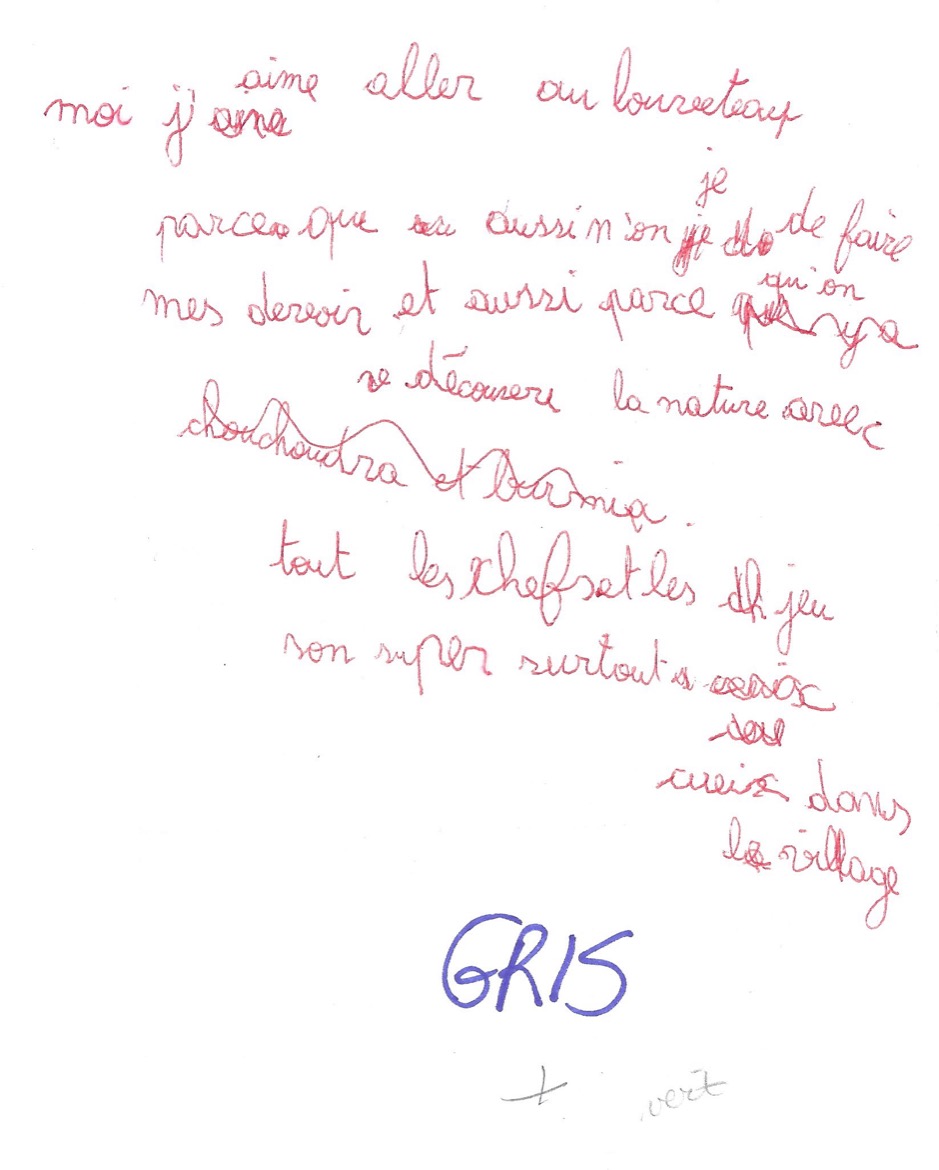 moi j'aime aller au louveteau
parce que aussi n'on je de faire
mes devoir et aussi parce qu'on y a
se découvere la nature avec
chouchoudra et burmia.
tout les chefs et les jeu
son super surtout
dans
le village
GRIS
+ vert